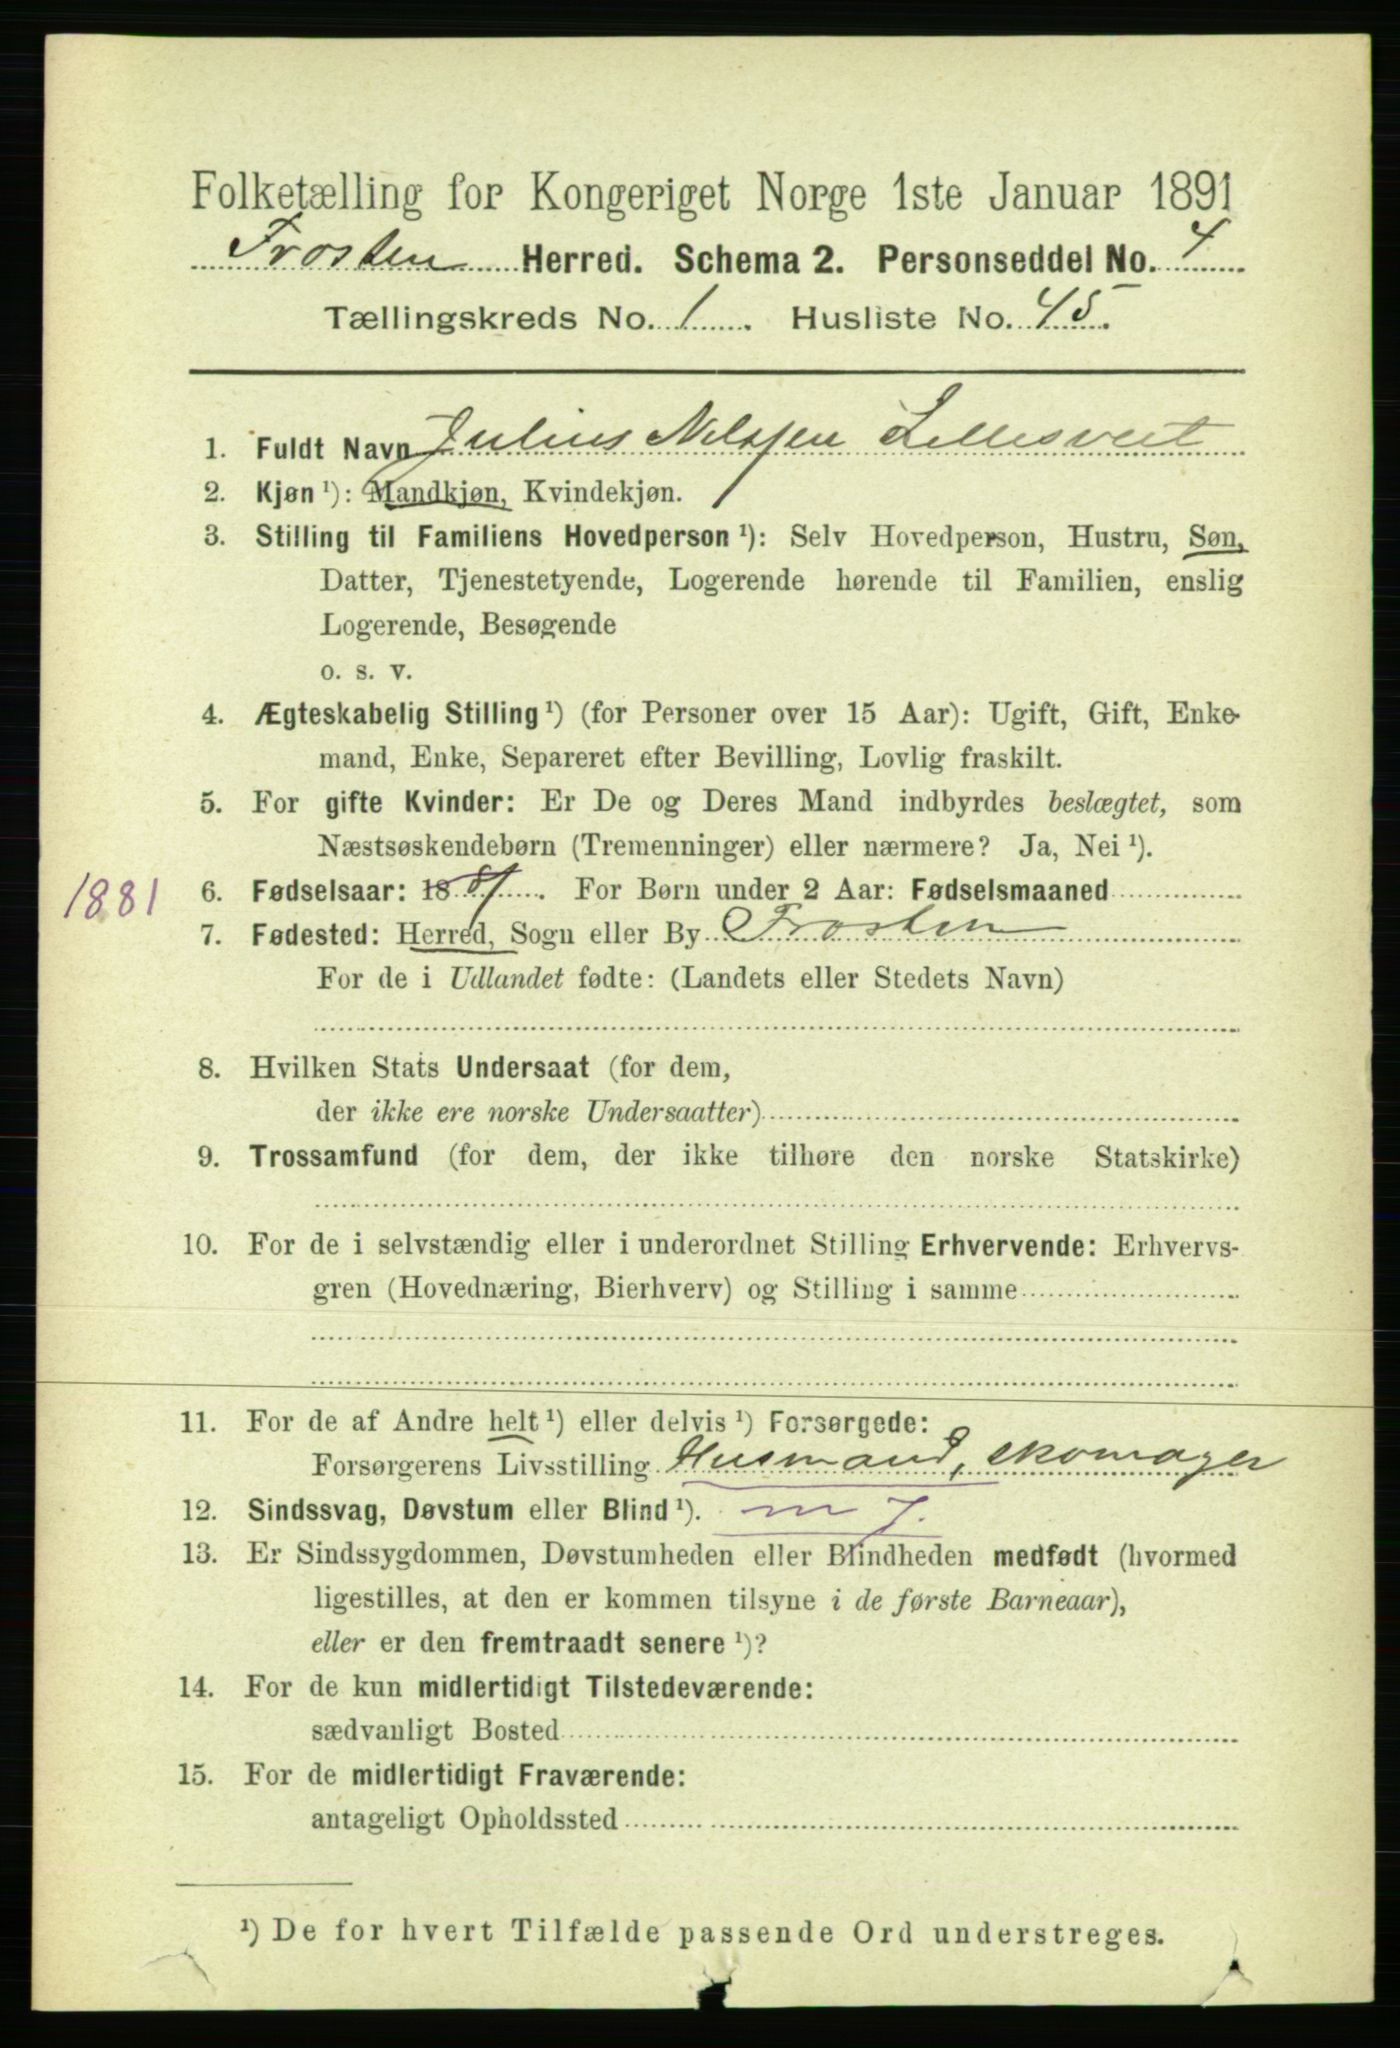 Folketælling for Kongeriget Norge 1ste Januar 1891
Frosten Herred. Schema 2. Personseddel No. 4
Tællingskreds No. 1. Husliste No. 45.
1. Fuldt Navn Julius Nilssen
2. Kjøn ¹): Mandkjøn, Kvindekjøn.
3. Stilling til Familiens Hovedperson ¹): Selv Hovedperson, Hustru, Søn,
Datter, Tjenestetyende, Logerende hørende til Familien, enslig
Logerende, Besøgende
o. s. v.
4. Ægteskabelig Stilling ¹) (for Personer over 15 Aar): Ugift, Gift, Enke-
mand, Enke, Separeret efter Bevilling, Lovlig fraskilt.
5. For gifte Kvinder: Er De og Deres Mand indbyrdes beslægtet, som
Næstsøskendebørn (Tremenninger) eller nærmere? Ja, Nei ¹).
1881 6. Fødselsaar: 1881. For Børn under 2 Aar: Fødselsmaaned
7. Fødested: Herred, Sogn eller By Frosten
For de i Udlandet fødte: (Landets eller Stedets Navn)
8. Hvilken Stats Undersaat (for dem,
der ikke ere norske Undersaatter)
9. Trossamfund (for dem, der ikke tilhøre den norske Statskirke)
10. For de i selvstændig eller i underordnet Stilling Erhvervende: Erhvervs-
gren (Hovednæring, Bierhverv) og Stilling i samme
11. For de af Andre helt ¹) eller delvis ¹) Forsørgede:
Forsørgerens Livsstilling Husmand, skomager
12. Sindssvag, Døvstum eller Blind ¹). m J.
13. Er Sindssygdommen, Døvstumheden eller Blindheden medfødt (hvormed
ligestilles, at den er kommen tilsyne i de første Barneaar),
eller er den fremtraadt senere ¹)?
14. For de kun midlertidigt Tilstedeværende:
sædvanligt Bosted
15. For de midlertidigt Fraværende:
antageligt Opholdssted
¹) De for hvert Tilfælde passende Ord understreges.